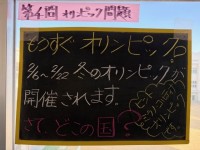 第4問 オリンピック問題
もうすぐオリンピック!?
2/6〜2/22 冬のオリンピックが
開催されます。
さて、どこの国?